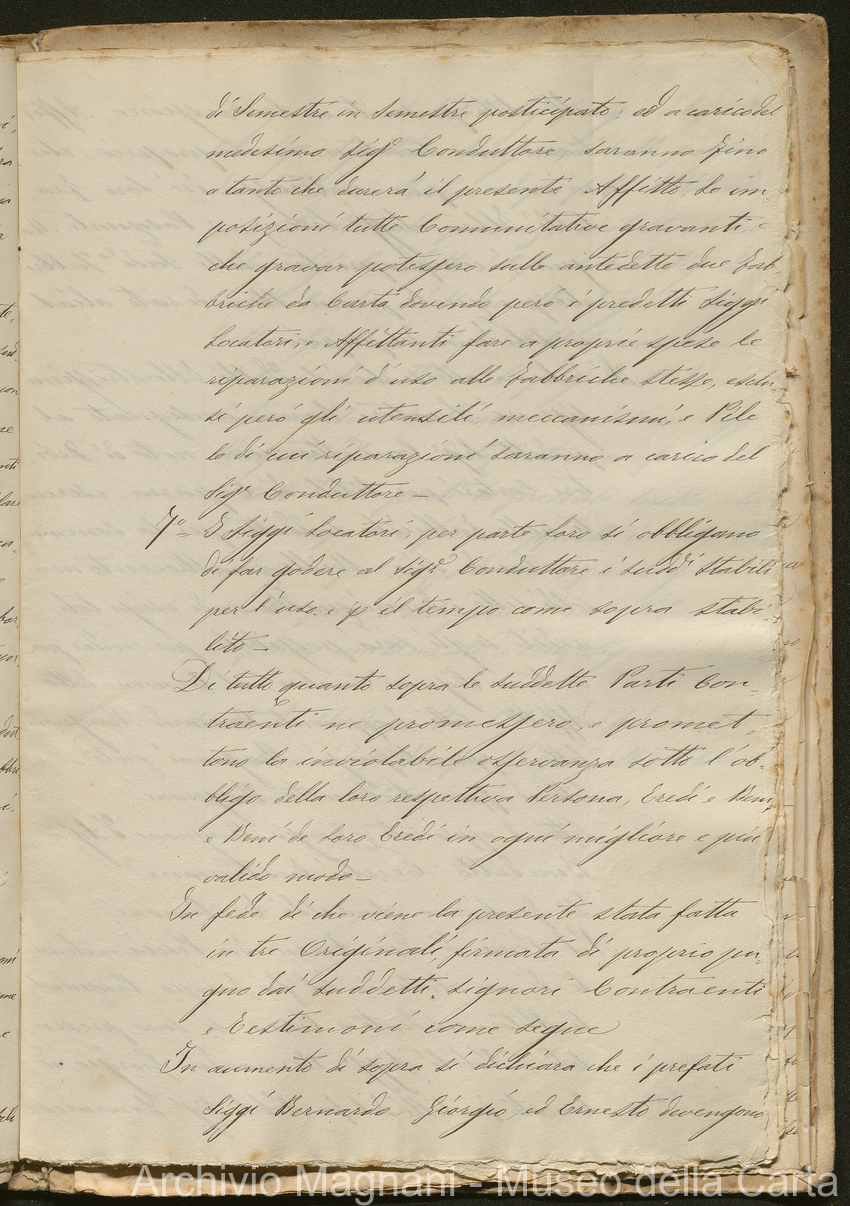 di Semestre in Semestre posticipato; ed a carico del
medesimo Sigr Conduttore saranno fino
a tanto che durerà il presente Affitto, le im-
posizioni tutte Comunitative gravanti, e
che gravar potessero sulle antedette due Fab-
briche da Carta dovendo però i predetti Siggri
Locatori, e Affittanti fare a proprie spese le
riparazioni d'uso alle Fabbriche stesse, esclu-
si però gli utensili, meccanismi, e Pile
le di cui riparazioni saranno a carico del
Sigr Conduttore —
7o = I Siggri Locatori per parte loro si obbligano
di far godere al Sigr Conduttore i sudd.i Stabili
per l'uso, e p il tempo come sopra stabi-
lito —
Di tutto quanto sopra le suddette Parti Con-
traenti ne promessero, e promet-
tono la inviolabile osservanza sotto l'ob-
bligo della loro respettiva Persona, Eredi e Beni,
e Beni de loro Eredi in ogni migliore e più
valido modo —
In fede di che viene la presente stata fatta
in tre Originali, firmata di proprio pu-
gno dai suddetti signori Contraenti
e Testimoni come segue
In aumento di sopra si dichiara che i prefati
Siggri Bernardo Giorgio, ed Ernesto devengono
Archivio Magnani - Museo della Carta